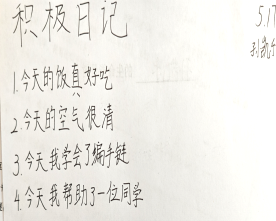 积极日记
5.17
1.今天的饭真好吃
2.今天的空气很清
3.今天我学会了编手链
4.今天我帮助了一位同学